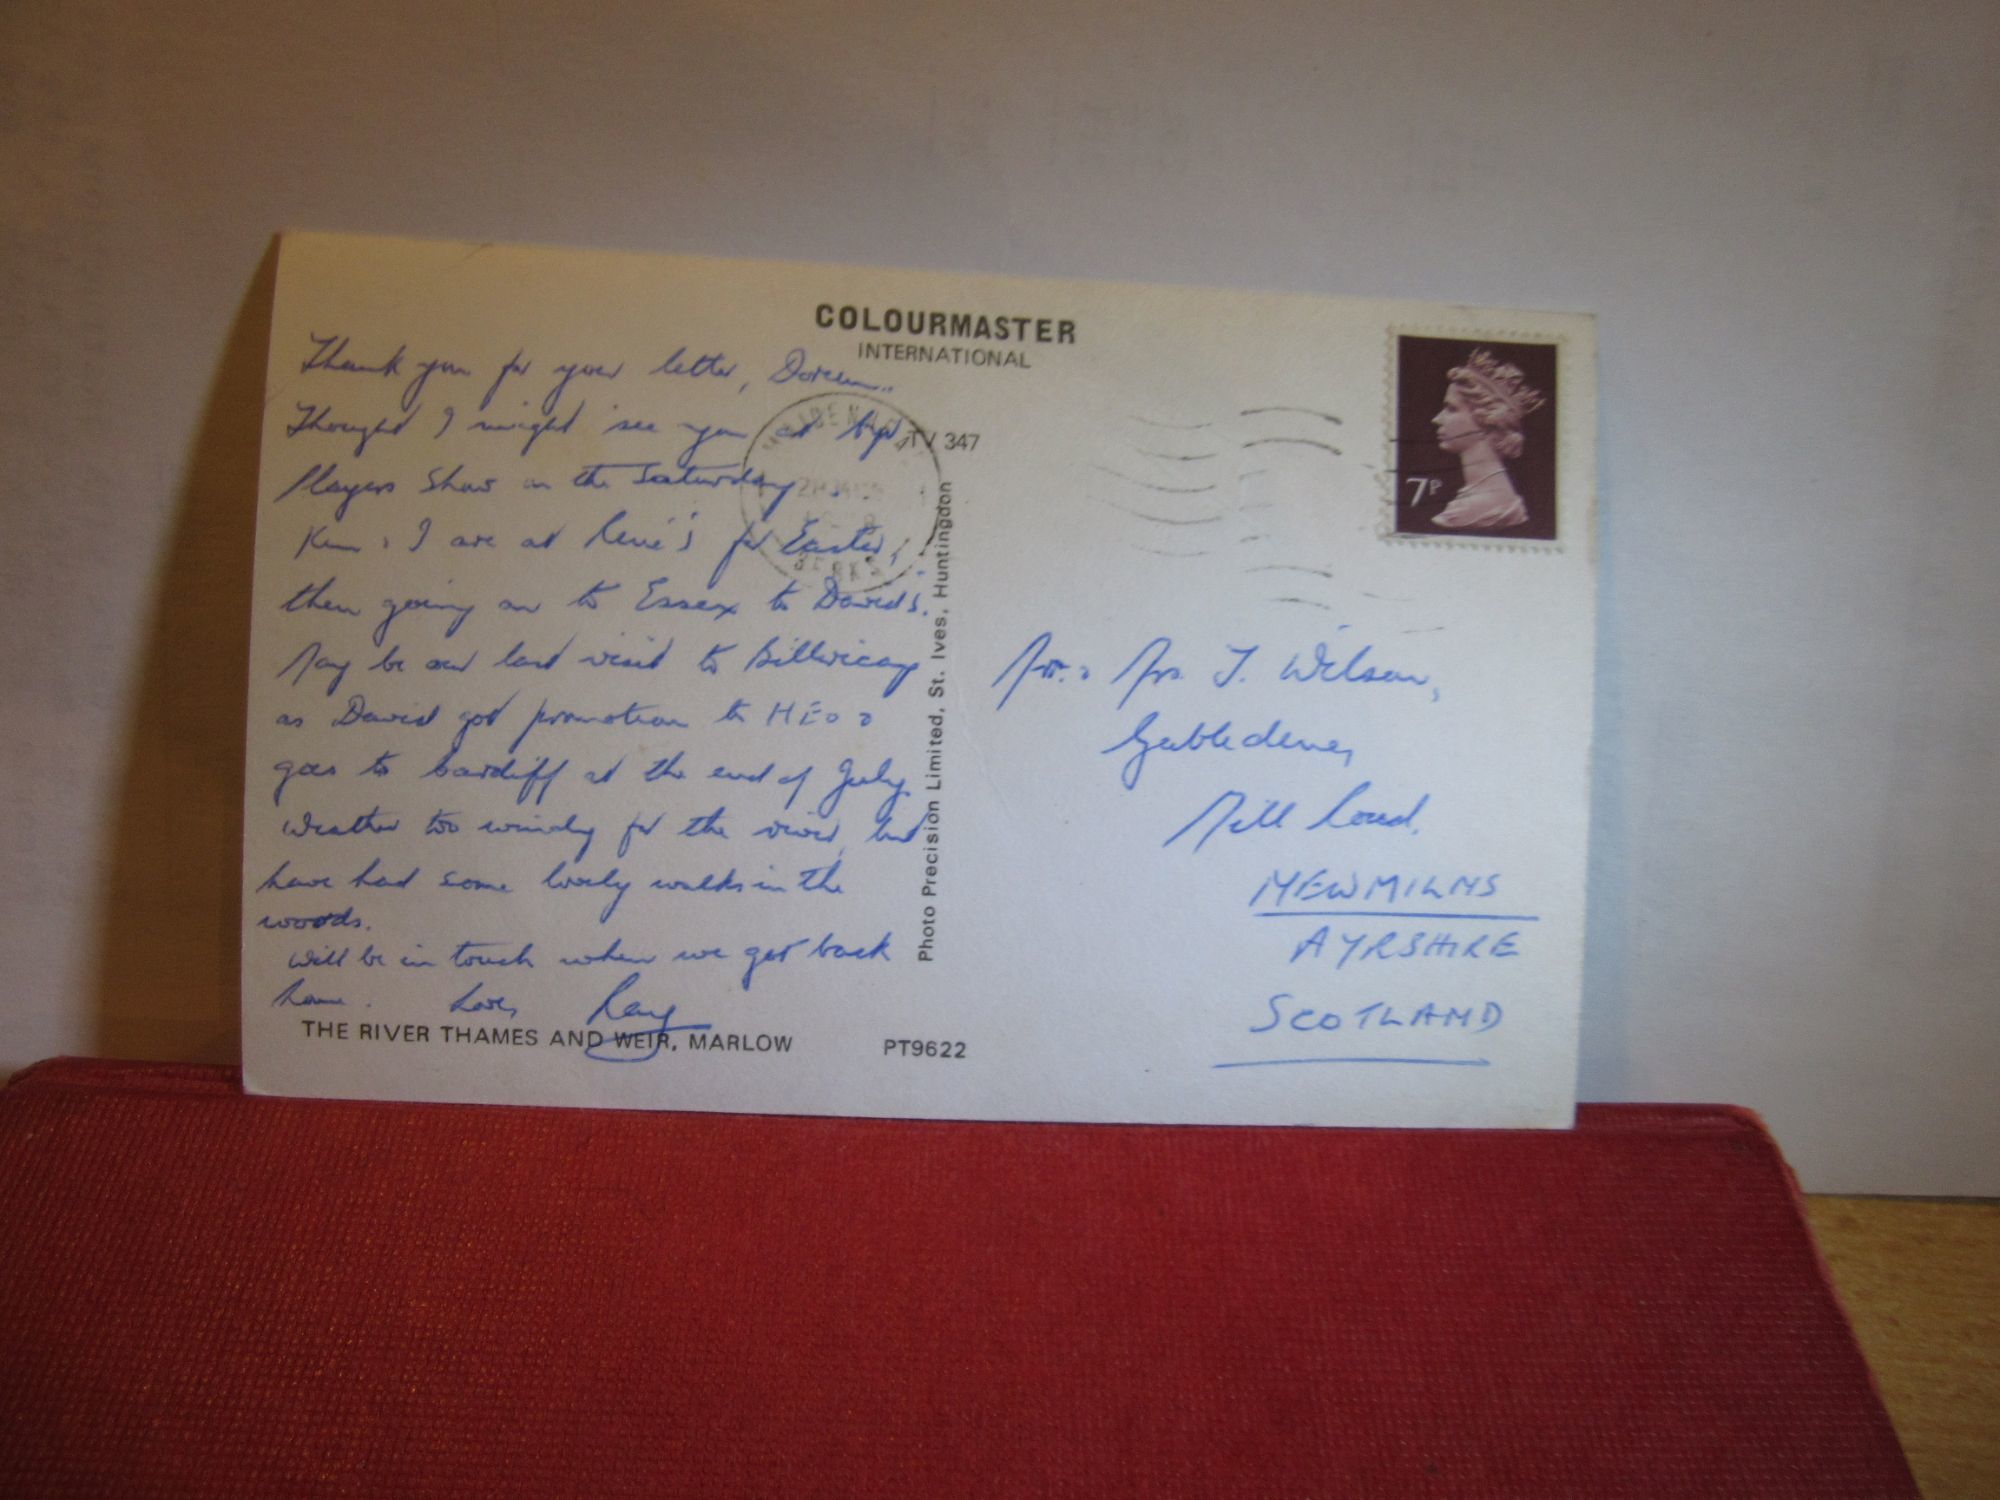 COLOURMASTER
INTERNATIONAL
Thank you for your letter, Doreen..
Thought I might see you at
Players Show on the Saturday.
Ken & I are at Rene's for Easter,
then going on to Essex to David's.
May be our last visit to Billericay
as David got promotion to HEO &
goes to Cardiff at the end of July.
Weather too windy for the river, but
have had some lovely walks in the
woods.
Will be in touch when we get back
home. Love, Ray
THE RIVER THAMES AND WEIR, MARLOW
PT9622
TV 347
Photo Precision Limited, St. Ives, Huntingdon
MAIDENHEAD
BERKS
7P
Mr. & Mrs. T. Wilson,
Gabledene,
Mill Road,
NEWMILNS
AYRSHIRE
SCOTLAND